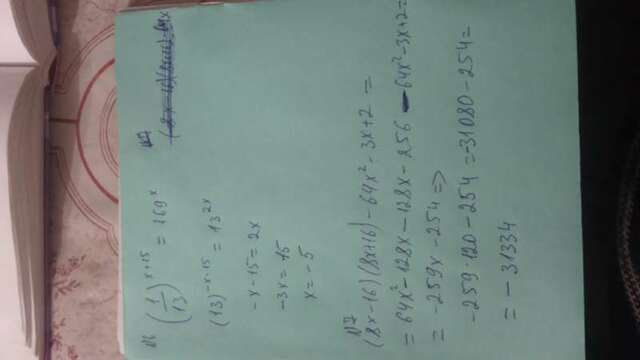 №6
(1/13)^(x+15) = 169^x
(13)^(-x-15) = 13^(2x)
-x-15=2x
-3x=15
x=-5
№7
№7
(8x-16)(8x+16)-64x²-3x+2 =
= 64x²-128x-128x-256-64x²-3x+2=
= -259x-254 =>
-259·120-254 =-31080-254=
= -31334